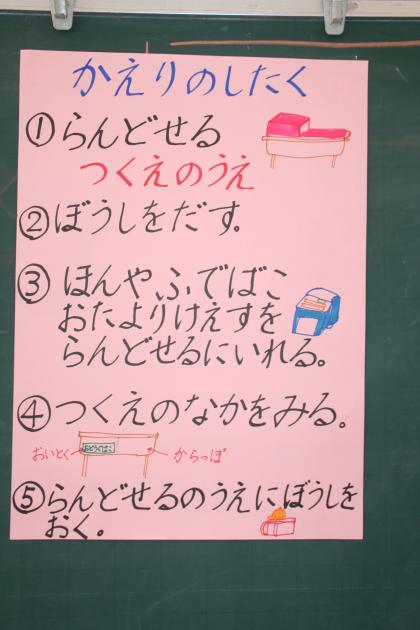 かえりのしたく
①らんどせる
つくえのうえ
②ぼうしをだす。
③ほんや、ふでばこ
おたよりけえすを
らんどせるにいれる。
④つくえのなかをみる。
おいとく
おどうぐばこ
からっぽ
⑤らんどせるのうえにぼうしを
おく。